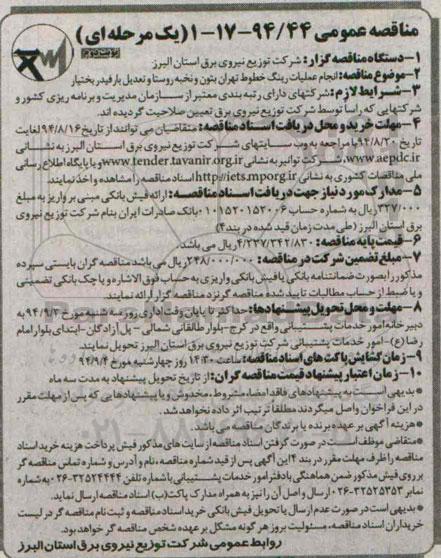 مناقصه عمومی ۹۴/۴۴-۱۷-۱ (یک مرحله ای)
نوبت دوم
۱- دستگاه مناقصه گزار: شرکت توزیع نیروی برق استان البرز
۲- موضوع مناقصه: انجام عملیات رینگ خطوط تهران بتون و نخبه روستا و تعدیل بار فیدر بختیار
۳- شرایط لازم: شرکتهای دارای رتبه بندی معتبر از سازمان مدیریت و برنامه ریزی کشور و
شرکتهایی که راسا توسط شرکت توزیع نیروی برق تعیین صلاحیت گردیده اند.
۴- مهلت خرید و محل دریافت اسناد مناقصه: متقاضیان می توانند از تاریخ ۹۴/۸/۱۶ لغایت
تاریخ ۹۴/۸/۲۰ با مراجعه به وب سایتهای شرکت توزیع نیروی برق استان البرز به نشانی
www.aepdc.ir، شرکت توانیر به نشانی www.tender.tavanir.org.ir و یا پایگاه اطلاع رسانی
ملی مناقصات کشوری به نشانی http://iets.mporg.ir اسناد مناقصه را مشاهده و اخذ نمایند.
۵- مدارک مورد نیاز جهت دریافت اسناد مناقصه: ارائه فیش بانکی مبنی بر واریز به مبلغ
۳۲۷/۰۰۰ ریال به شماره حساب ۰۱۰۱۵۲۰۱۵۲۰۰۶ بانک صادرات ایران بنام شرکت توزیع نیروی
برق استان البرز (طی مدت زمان قید شده در بند ۴)
۶- قیمت پایه مناقصه: ۴/۲۳۷/۳۴۲/۸۳۰ ریال می باشد.
۷- مبلغ تضمین شرکت در مناقصه: ۲۴۸/۰۰۰/۰۰۰ ریال می باشد مناقصه گران بایستی سپرده
مذکور را بصورت ضمانتنامه بانکی یا فیش بانکی واریزی به حساب فوق الاشاره و یا چک بانکی تضمینی
و یا ضبط از حساب مطالبات تایید شده مناقصه گر نزد مناقصه گزار ارائه نمایند.
۸- مهلت و محل تحویل پیشنهادها: حداکثر تا پایان وقت اداری روز سه شنبه مورخ ۹۴/۹/۳ به
دبیرخانه امور خدمات پشتیبانی واقع در کرج- بلوار طالقانی شمالی- پل آزادگان- ابتدای بلوار امام
رضا (ع)- امور خدمات پشتیبانی شرکت توزیع نیروی برق استان البرز تحویل نمایند.
۹- زمان گشایش پاکت های اسناد مناقصه: ساعت ۱۴:۳۰ روز چهارشنبه مورخ ۹۴/۹/۴
۱۰- زمان اعتبار پیشنهاد قیمت مناقصه گران: از تاریخ تحویل پیشنهاد به مدت سه ماه
• بدیهی است به پیشنهادهای فاقد امضاء، مشروط، مخدوش و یا پیشنهادهایی که پس از مهلت مقرر
در این فراخوان واصل میگردند مطلقا ترتیب اثر داده نخواهد شد.
• هزینه آگهی بر عهده برنده یا برندگان مناقصه می باشد.
• متقاضی موظف است در صورت گرفتن اسناد مناقصه از سایت های مذکور فیش پرداخت هزینه خرید اسناد
مناقصه را ظرف مهلت مقرر در بند ۴ این آگهی پس از قید شماره مناقصه، نام و آدرس و شماره تماس مناقصه گر
بر روی فیش مذکور ضمن هماهنگی با دفتر امور خدمات پشتیبانی با شماره تلفن ۳۲۵۲۴۴۴۴-۰۲۶ به شماره
نمابر ۳۲۵۲۵۳۵۳-۰۲۶ ارسال و اصل آن را نیز به همراه مدارک پاکت (ب) اسناد مناقصه ارسال نماید.
• بدیهی است در صورت عدم ارسال یا تحویل فیش بانکی خرید اسناد مناقصه و ثبت نام مناقصه گر در لیست
خریداران اسناد مناقصه، مسئولیت بروز هر گونه مشکل بر عهده شخص مناقصه گر خواهد بود.
روابط عمومی شرکت توزیع نیروی برق استان البرز